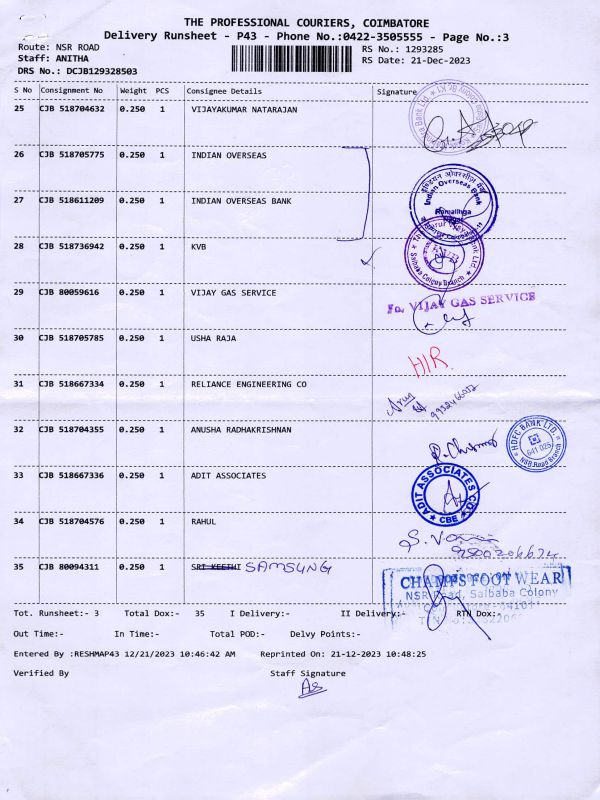 THE PROFESSIONAL COURIERS, COIMBATORE
Delivery Runsheet - P43 - Phone No.:0422-3505555 - Page No.:3
Route: NSR ROAD
RS No.: 1293285
Staff: ANITHA
RS Date: 21-Dec-2023
DRS No.: DCJB129328503
S No Consignment No Weight PCS Consignee Details Signature
25 CJB 518704632 0.250 1 VIJAYAKUMAR NATARAJAN
26 CJB 518705775 0.250 1 INDIAN OVERSEAS
इंडियन ओवरसीज़ बैंक
Indian Overseas Bank
27 CJB 518611209 0.250 1 INDIAN OVERSEAS BANK
28 CJB 518736942 0.250 1 KVB
Saibaba Colony Branch
29 CJB 80059616 0.250 1 VIJAY GAS SERVICE
For VIJAY GAS SERVICE
30 CJB 518705785 0.250 1 USHA RAJA
31 CJB 518667334 0.250 1 RELIANCE ENGINEERING CO
32 CJB 518704355 0.250 1 ANUSHA RADHAKRISHNAN
HDFC BANK LTD.
641 025
NSR Road Branch
33 CJB 518667336 0.250 1 ADIT ASSOCIATES
ADIT ASSOCIATES CO.
CBE
34 CJB 518704576 0.250 1 RAHUL
35 CJB 80094311 0.250 1 SRI KEETHI SAMSUNG
CHAMPS FOOT WEAR
NSR Road, Saibaba Colony
Tot. Runsheet:- 3 Total Dox:- 35 I Delivery:- II Delivery:- RTN Dox:-
Out Time:- In Time:- Total POD:- Delvy Points:-
Entered By :RESHMAP43 12/21/2023 10:46:42 AM Reprinted On: 21-12-2023 10:48:25
Verified By Staff Signature